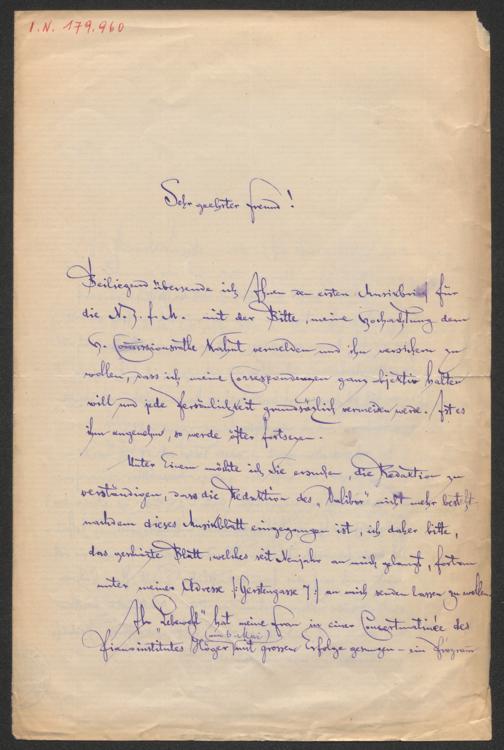 I.N. 179.960
Sehr geehrter Freund!
Beiliegend übersende ich Ihnen den ersten Musikbrief für
die N. Z. f. M. mit der Bitte, meine Hochachtung dem
H. Commissionsrathe Kahnt vermelden und ihn versichern zu
wollen, dass ich meine Correspondenzen ganz objektiv halten
will und jede Persönlichkeit grundsäzlich vermeiden werde. Ist es
ihm angenehm, so werde öfter fortsezen.
Unter Einem möchte ich Sie ersuchen, die Redaktion zu
verständigen, dass die Redaktion des „Dalibor" nicht mehr besteht
nachdem dieses Musikblatt eingegangen ist, ich daher bitte,
das geehrte Blatt, welches seit Neujahr an mich gelangt, fortan
unter meiner Adresse /: Gerstengasse 7 :/ an mich senden lassen zu wollen
Ihr „Lebewohl" hat meine Frau in einer Concertmatinée des
(am 6. Mai)
Pianoinstitutes Höger mit grossem Erfolge gesungen – ein Program